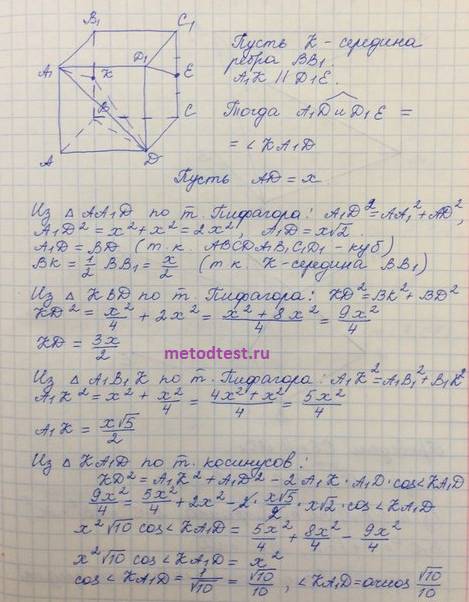 B₁ C₁
A₁ D₁ K E
B C
A D
Пусть K - середина
ребра BB₁
A₁K || D₁E.
Тогда A₁D и D₁E =
= ∠KA₁D
Пусть AD = x
Из △ AA₁D по т. Пифагора: A₁D² = AA₁² + AD²,
A₁D² = x² + x² = 2x², A₁D = x√2.
A₁D = BD (т.к. ABCDA₁B₁C₁D₁ - куб)
BK = 1/2 BB₁ = x/2 (т.к. K-середина BB₁)
Из △ KBD по т. Пифагора: KD² = BK² + BD²
KD² = x²/4 + 2x² = (x² + 8x²)/4 = 9x²/4
KD = 3x/2
metodtest.ru
Из △ A₁B₁K по т. Пифагора: A₁K² = A₁B₁² + B₁K²
A₁K² = x² + x²/4 = (4x² + x²)/4 = 5x²/4
A₁K = x√5/2
Из △ KA₁D по т. косинусов:
KD² = A₁K² + A₁D² - 2 A₁K · A₁D · cos∠KA₁D
9x²/4 = 5x²/4 + 2x² - 2 · x√5/2 · x√2 · cos∠KA₁D
x²√10 cos∠KA₁D = 5x²/4 + 8x²/4 - 9x²/4
x²√10 cos∠KA₁D = x²
cos∠KA₁D = 1/√10 = √10/10, ∠KA₁D = arccos √10/10